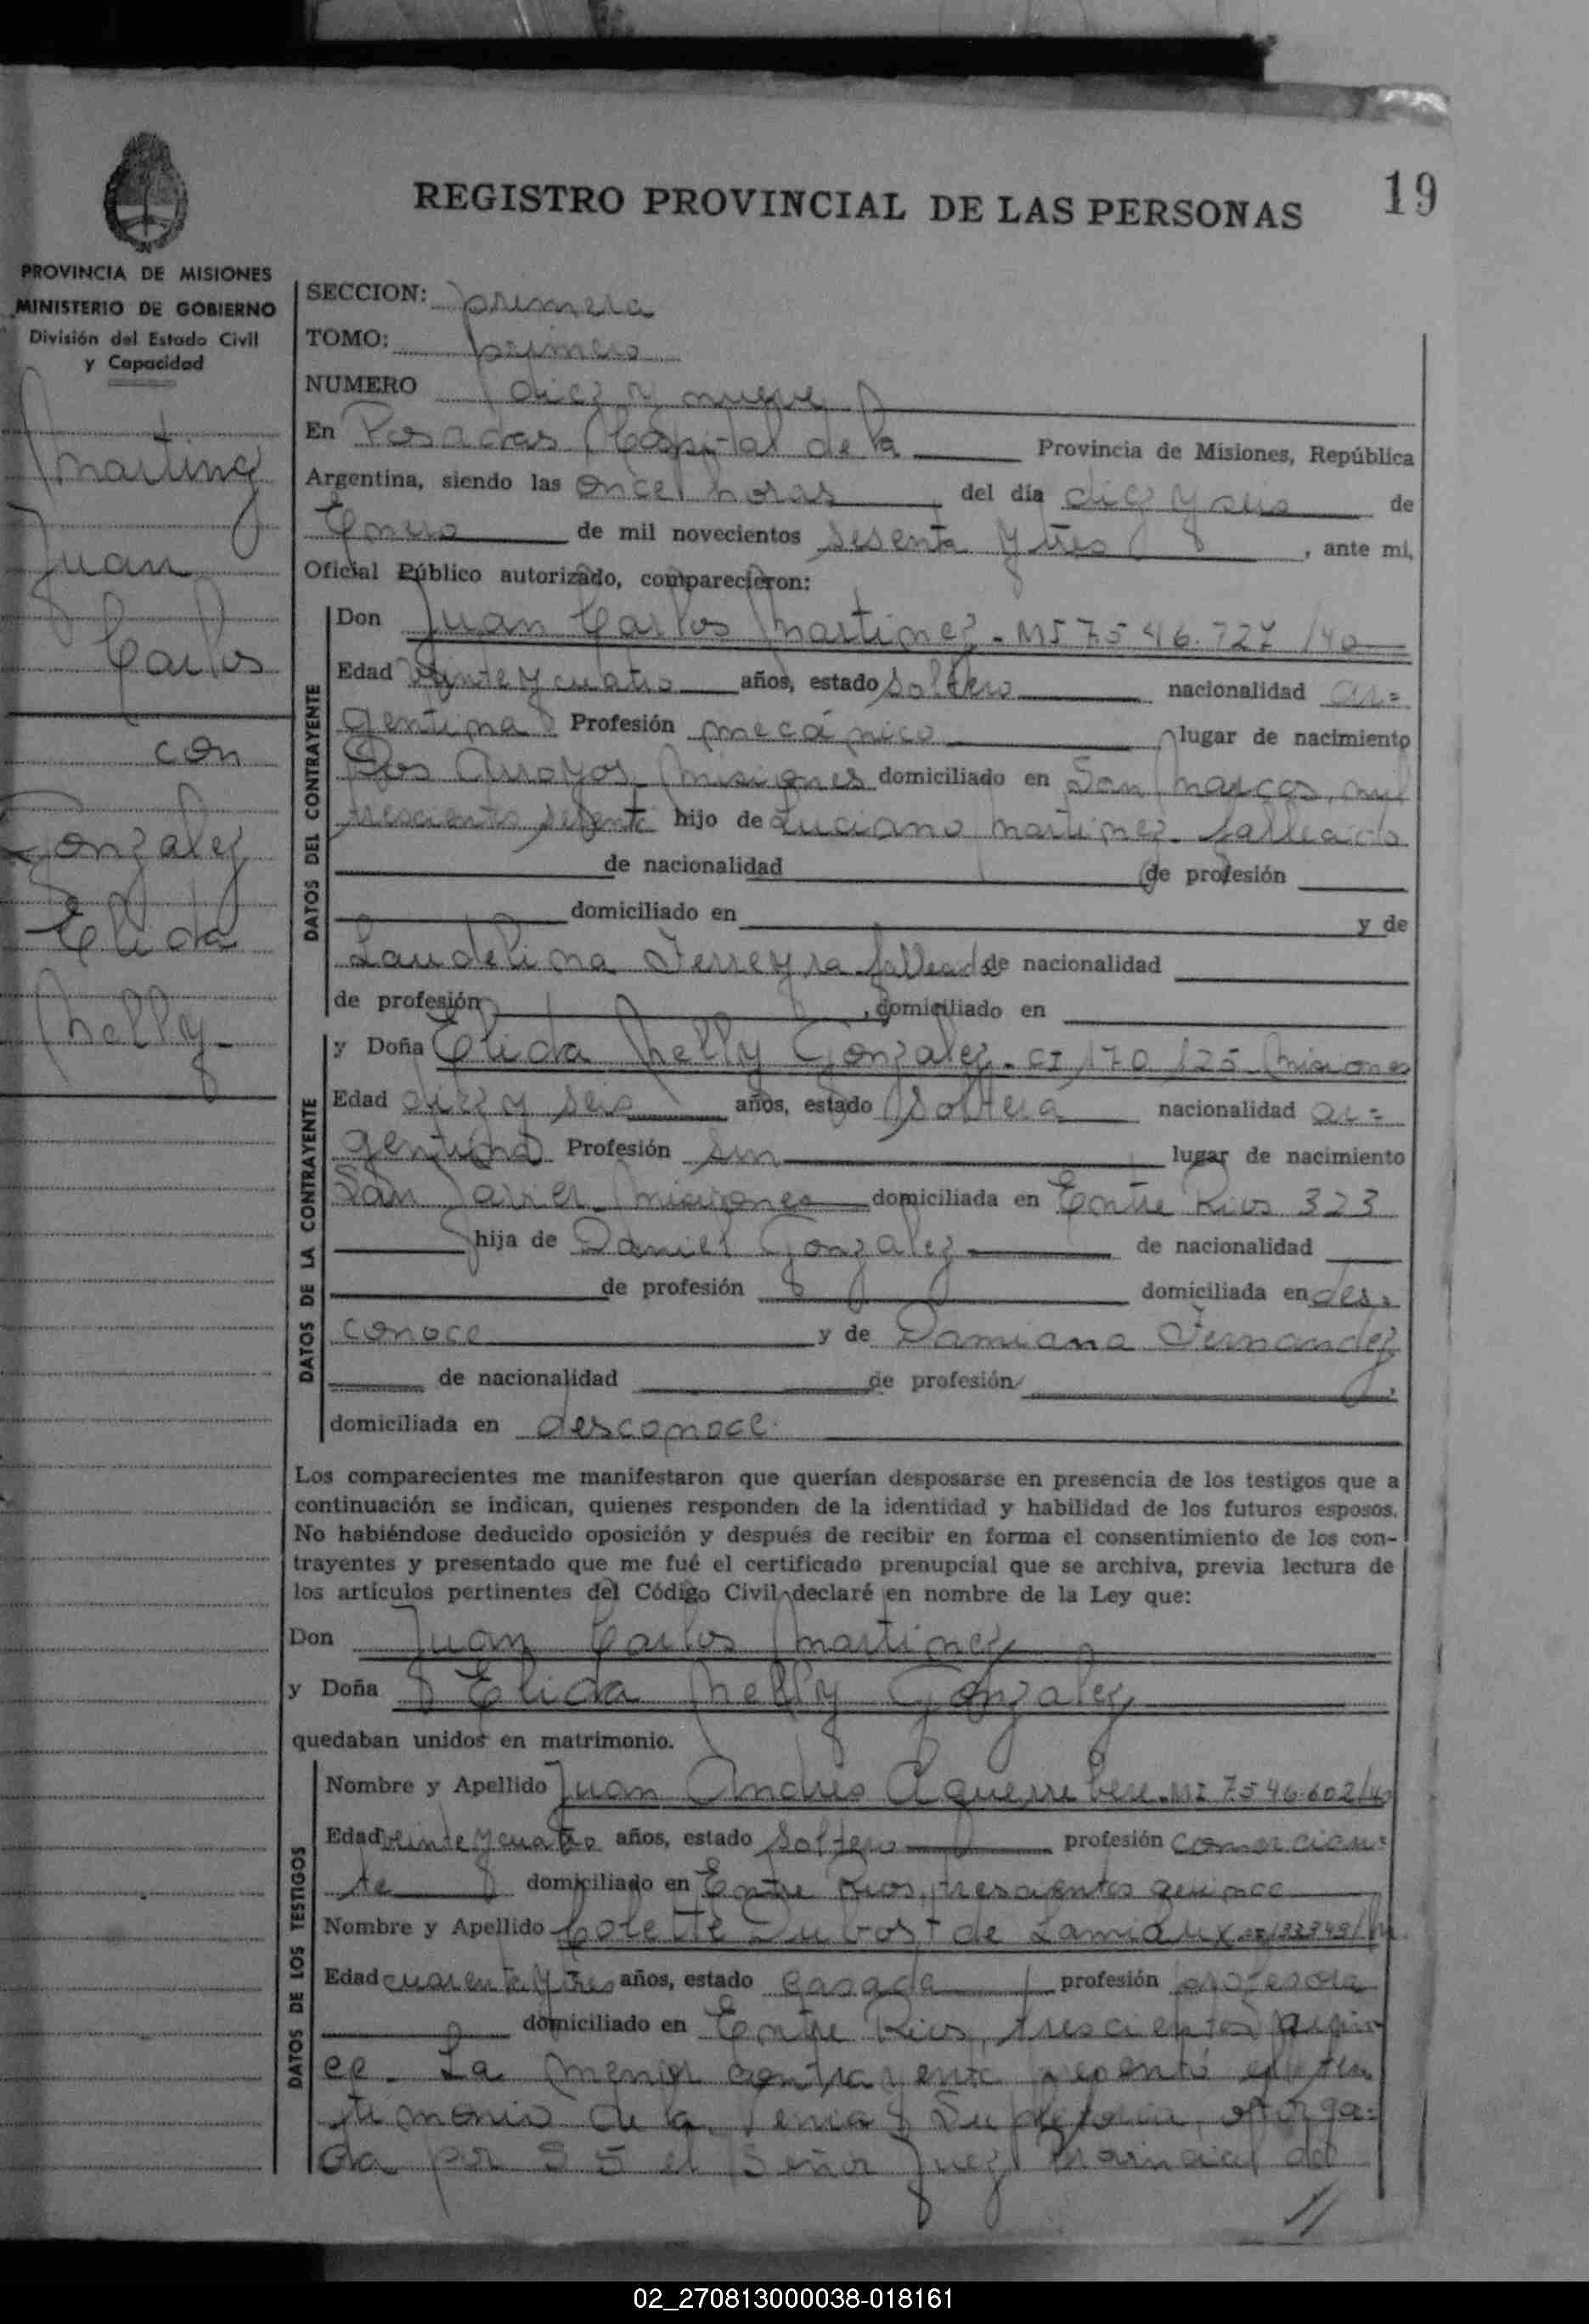 REGISTRO PROVINCIAL DE LAS PERSONAS
19
PROVINCIA DE MISIONES
MINISTERIO DE GOBIERNO
División del Estado Civil
y Capacidad
Martinez
Juan
Carlos
con
Gonzalez
Elida
Nelly
SECCION: primera
TOMO: primero
NUMERO diez y nueve
En Posadas Capital de la Provincia de Misiones, República
Argentina, siendo las once horas del día diez y seis de
Enero de mil novecientos sesenta y tres, ante mi,
Oficial Público autorizado, comparecieron:
DATOS DEL CONTRAYENTE
Don Juan Carlos Martinez - MI 7.546.727/40
Edad veinte y cuatro años, estado soltero nacionalidad ar=
gentina Profesión mecánico lugar de nacimiento
Dos Arroyos, Misiones domiciliado en San Marcos, mil
trescientos hijo de Luciano Martinez - fallecido
de nacionalidad de profesión
domiciliado en y de
Laudelina Ferreyra fallecida de nacionalidad
de profesión, domiciliado en
DATOS DE LA CONTRAYENTE
y Doña Elida Nelly Gonzalez - CI 170.125 Misiones
Edad diez y seis años, estado soltera nacionalidad ar=
gentina Profesión sin lugar de nacimiento
San Javier - Misiones domiciliada en Entre Rios 323
hija de Daniel Gonzalez de nacionalidad
de profesión domiciliada en des=
conoce y de Damiana Fernandez
de nacionalidad de profesión,
domiciliada en desconoce.
Los comparecientes me manifestaron que querían desposarse en presencia de los testigos que a
continuación se indican, quienes responden de la identidad y habilidad de los futuros esposos.
No habiéndose deducido oposición y después de recibir en forma el consentimiento de los con-
trayentes y presentado que me fué el certificado prenupcial que se archiva, previa lectura de
los artículos pertinentes del Código Civil declaré en nombre de la Ley que:
Don Juan Carlos Martinez
y Doña Elida Nelly Gonzalez
quedaban unidos en matrimonio.
DATOS DE LOS TESTIGOS
Nombre y Apellido Juan Andrés Aguerre - MI 7.546.602/40
Edad veinte y cuatro años, estado soltero profesión comercian=
te domiciliado en Entre Rios, trescientos quince
Nombre y Apellido Colette Dubost de Lamiaux
Edad cuarenta y tres años, estado casada profesión profesora
domiciliado en Entre Rios, trescientos quin=
ce. La menor contrayente presentó el tes
timonio de la Venia Supletoria, otorga=
da por S S el Señor Juez Provincial del
//
02_270813000038-018161